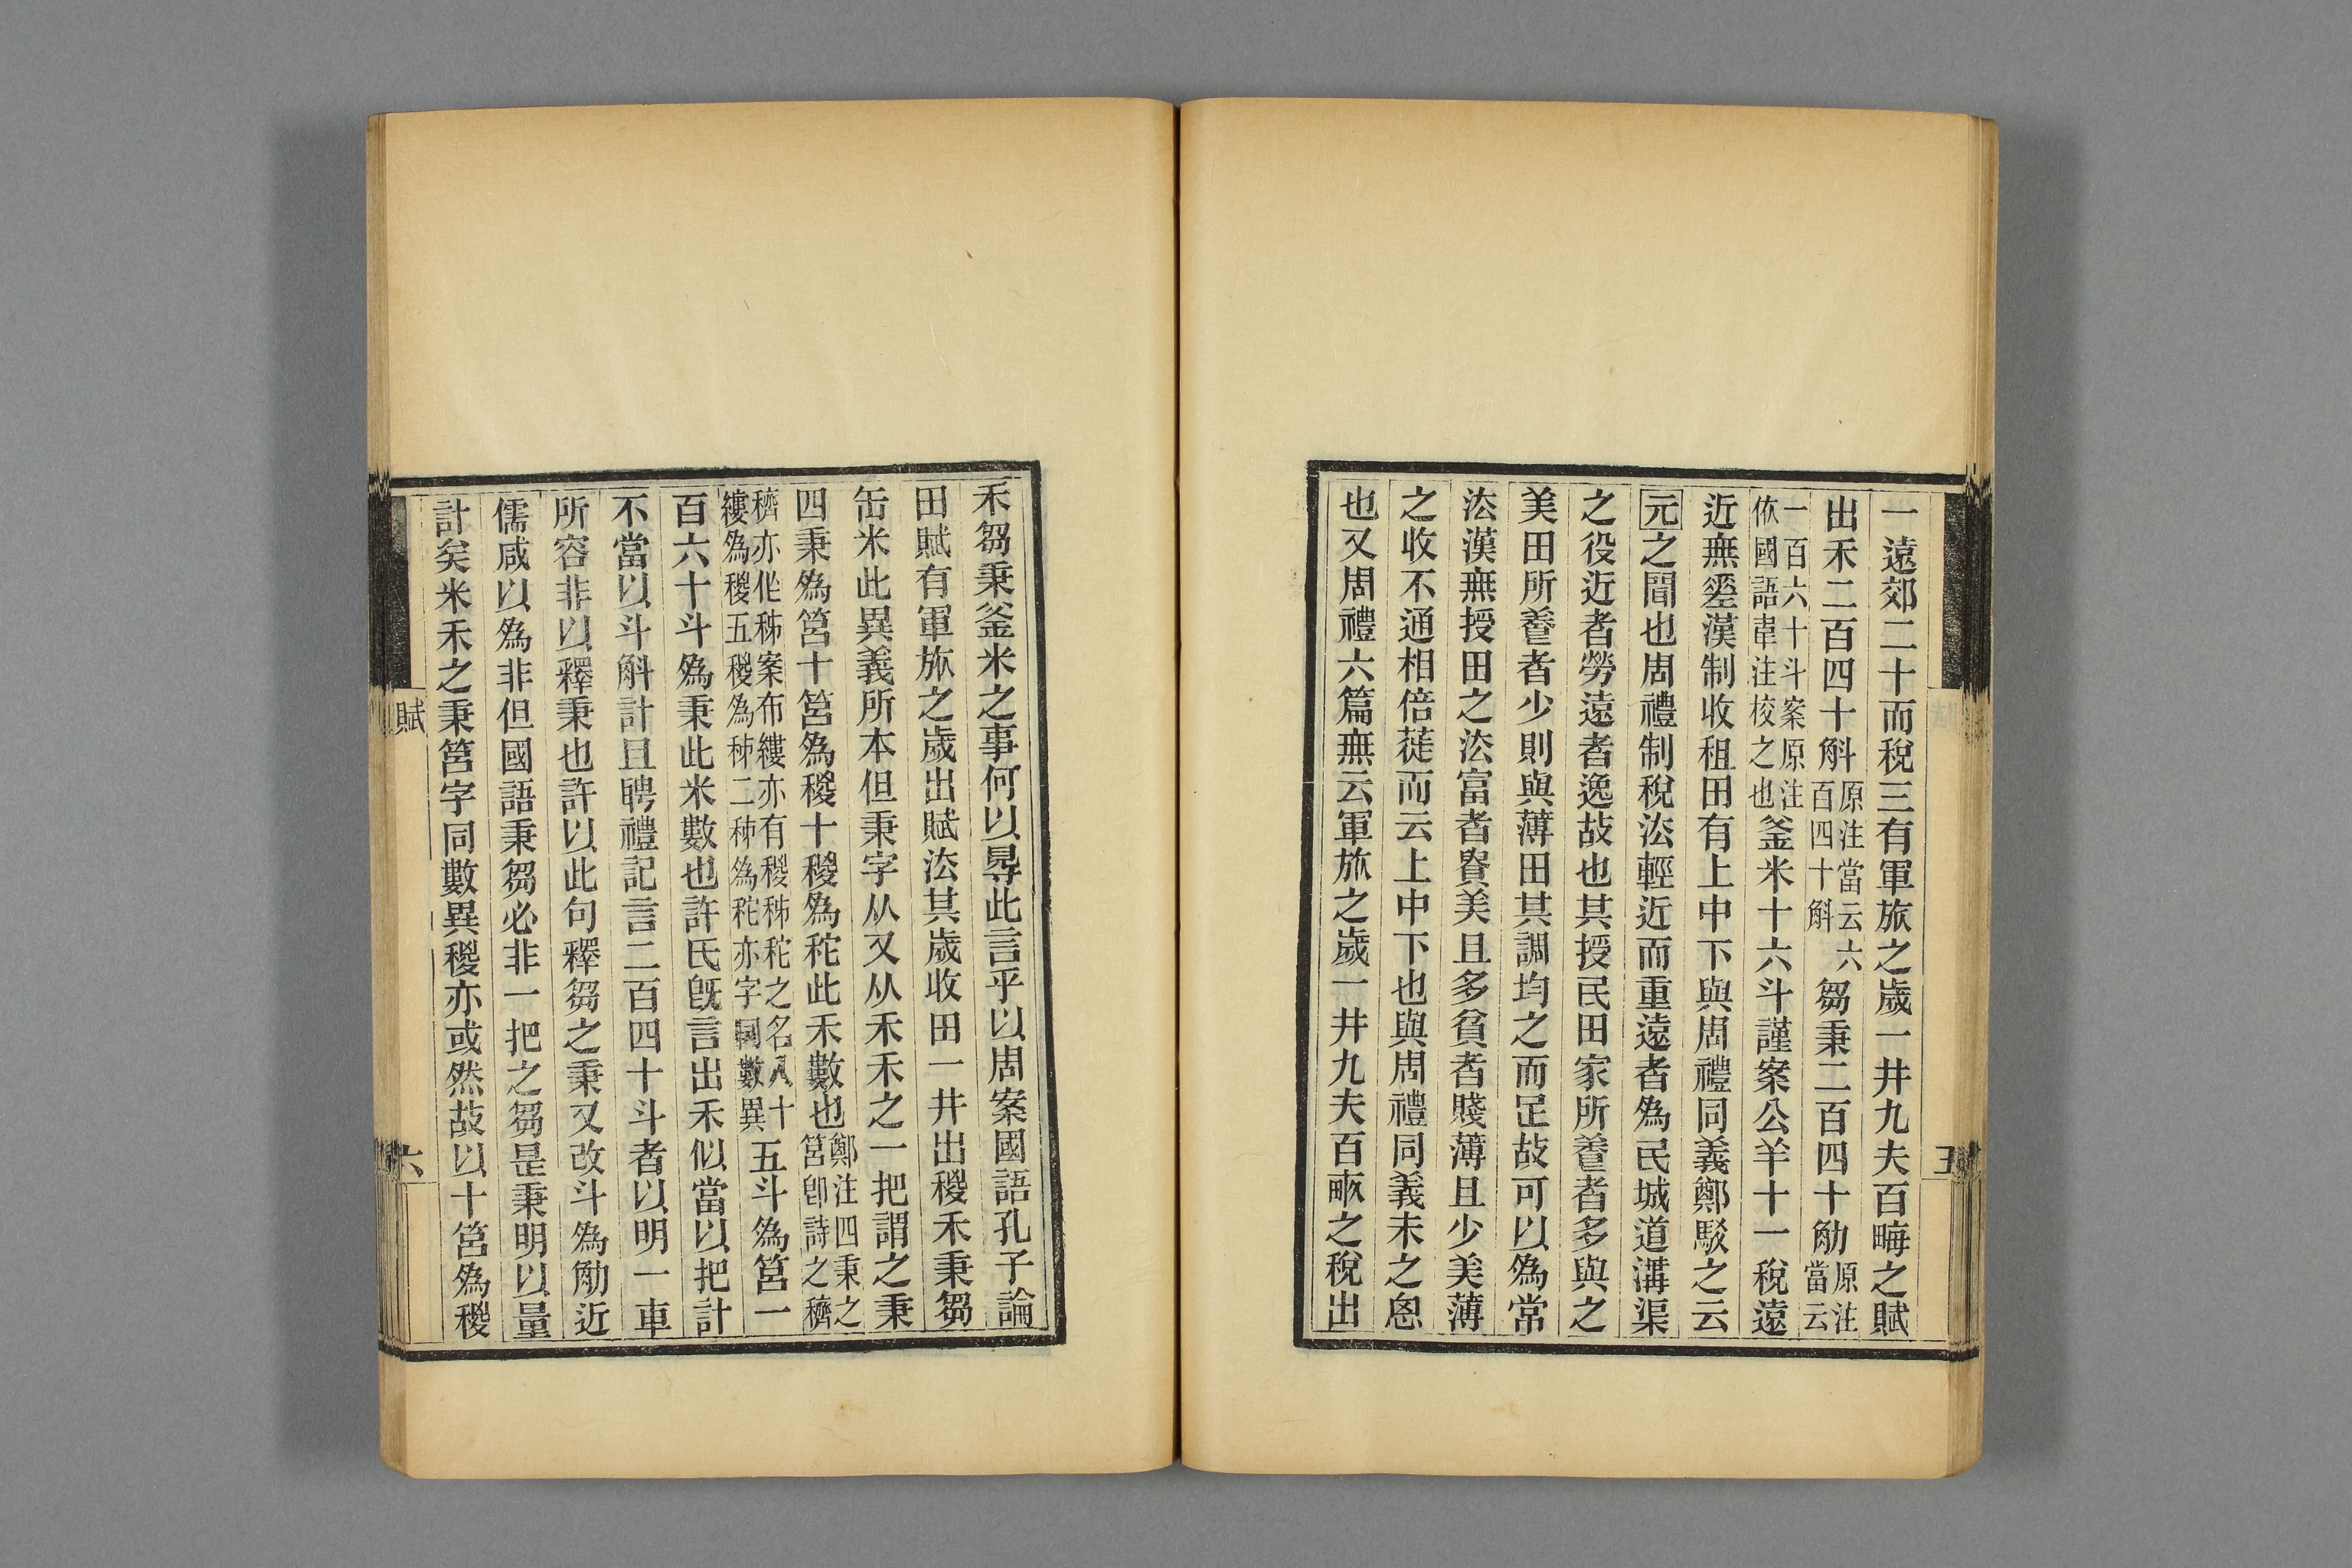 一遠郊二十而稅三有軍旅之歲一井九夫百畮之賦
出禾二百四十斛原注當云六百四十斛芻秉二百四十觔原注當云
一百六十斗案原注依國語韋注校之也釜米十六斗謹案公羊十一稅遠
近無𡍼漢制收租田有上中下與周禮同義鄭駁之云
元之聞也周禮制稅法輕近而重遠者爲民城道溝渠
之役近者勞遠者逸故也其授民田家所養者多與之
美田所養者少則與薄田其調均之而足故可以爲常
法漢無授田之法富者貴美且多貧者賤薄且少美薄
之收不通相倍蓰而云上中下也與周禮同義未之思
也又周禮六篇無云軍旅之歲一井九夫百畞之稅出
禾芻秉釜米之事何以㝵此言乎以周案國語孔子論
田賦有軍旅之歲出賦法其歲收田一井出稯禾秉芻
缶米此異義所本但秉字从又从禾禾之一把謂之秉
四秉爲筥十筥爲稯十稯爲秅此禾數也鄭注四秉之筥卽詩之穧
穧亦作秭案布縷亦有稯秭秅之名八十縷爲稯五稯爲秭二秭爲秅亦字同數異五斗爲筥一
百六十斗爲秉此米數也許氏旣言出禾似當以把計
不當以斗斛計且聘禮記言二百四十斗者以明一車
所容非以釋秉也許以此句釋芻之秉又改斗爲觔近
儒咸以爲非但國語秉芻必非一把之芻是秉明以量
計矣米禾之秉筥字同數異稯亦或然故以十筥爲稯
賦
六